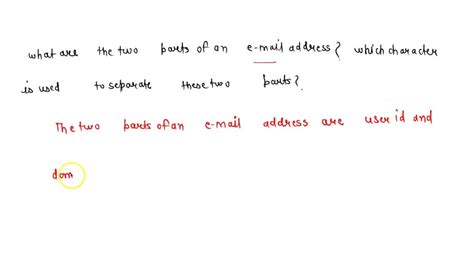 what are the two parts of an e-mail address? which character
is used to separate these two parts?
The two parts of an e-mail address are user id and
dom